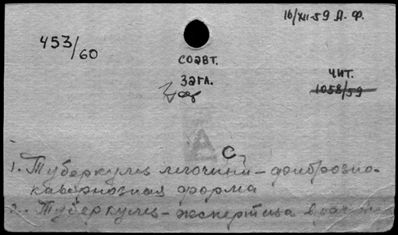 16/XII-59 Л. Ф.
453/60
СОАВТ.
ЗАГЛ.
ЧИТ.
1058/59
С
1. Туберкулез легочный - фиброзно-
кавернозная форма
2. Туберкулез - экспертиза